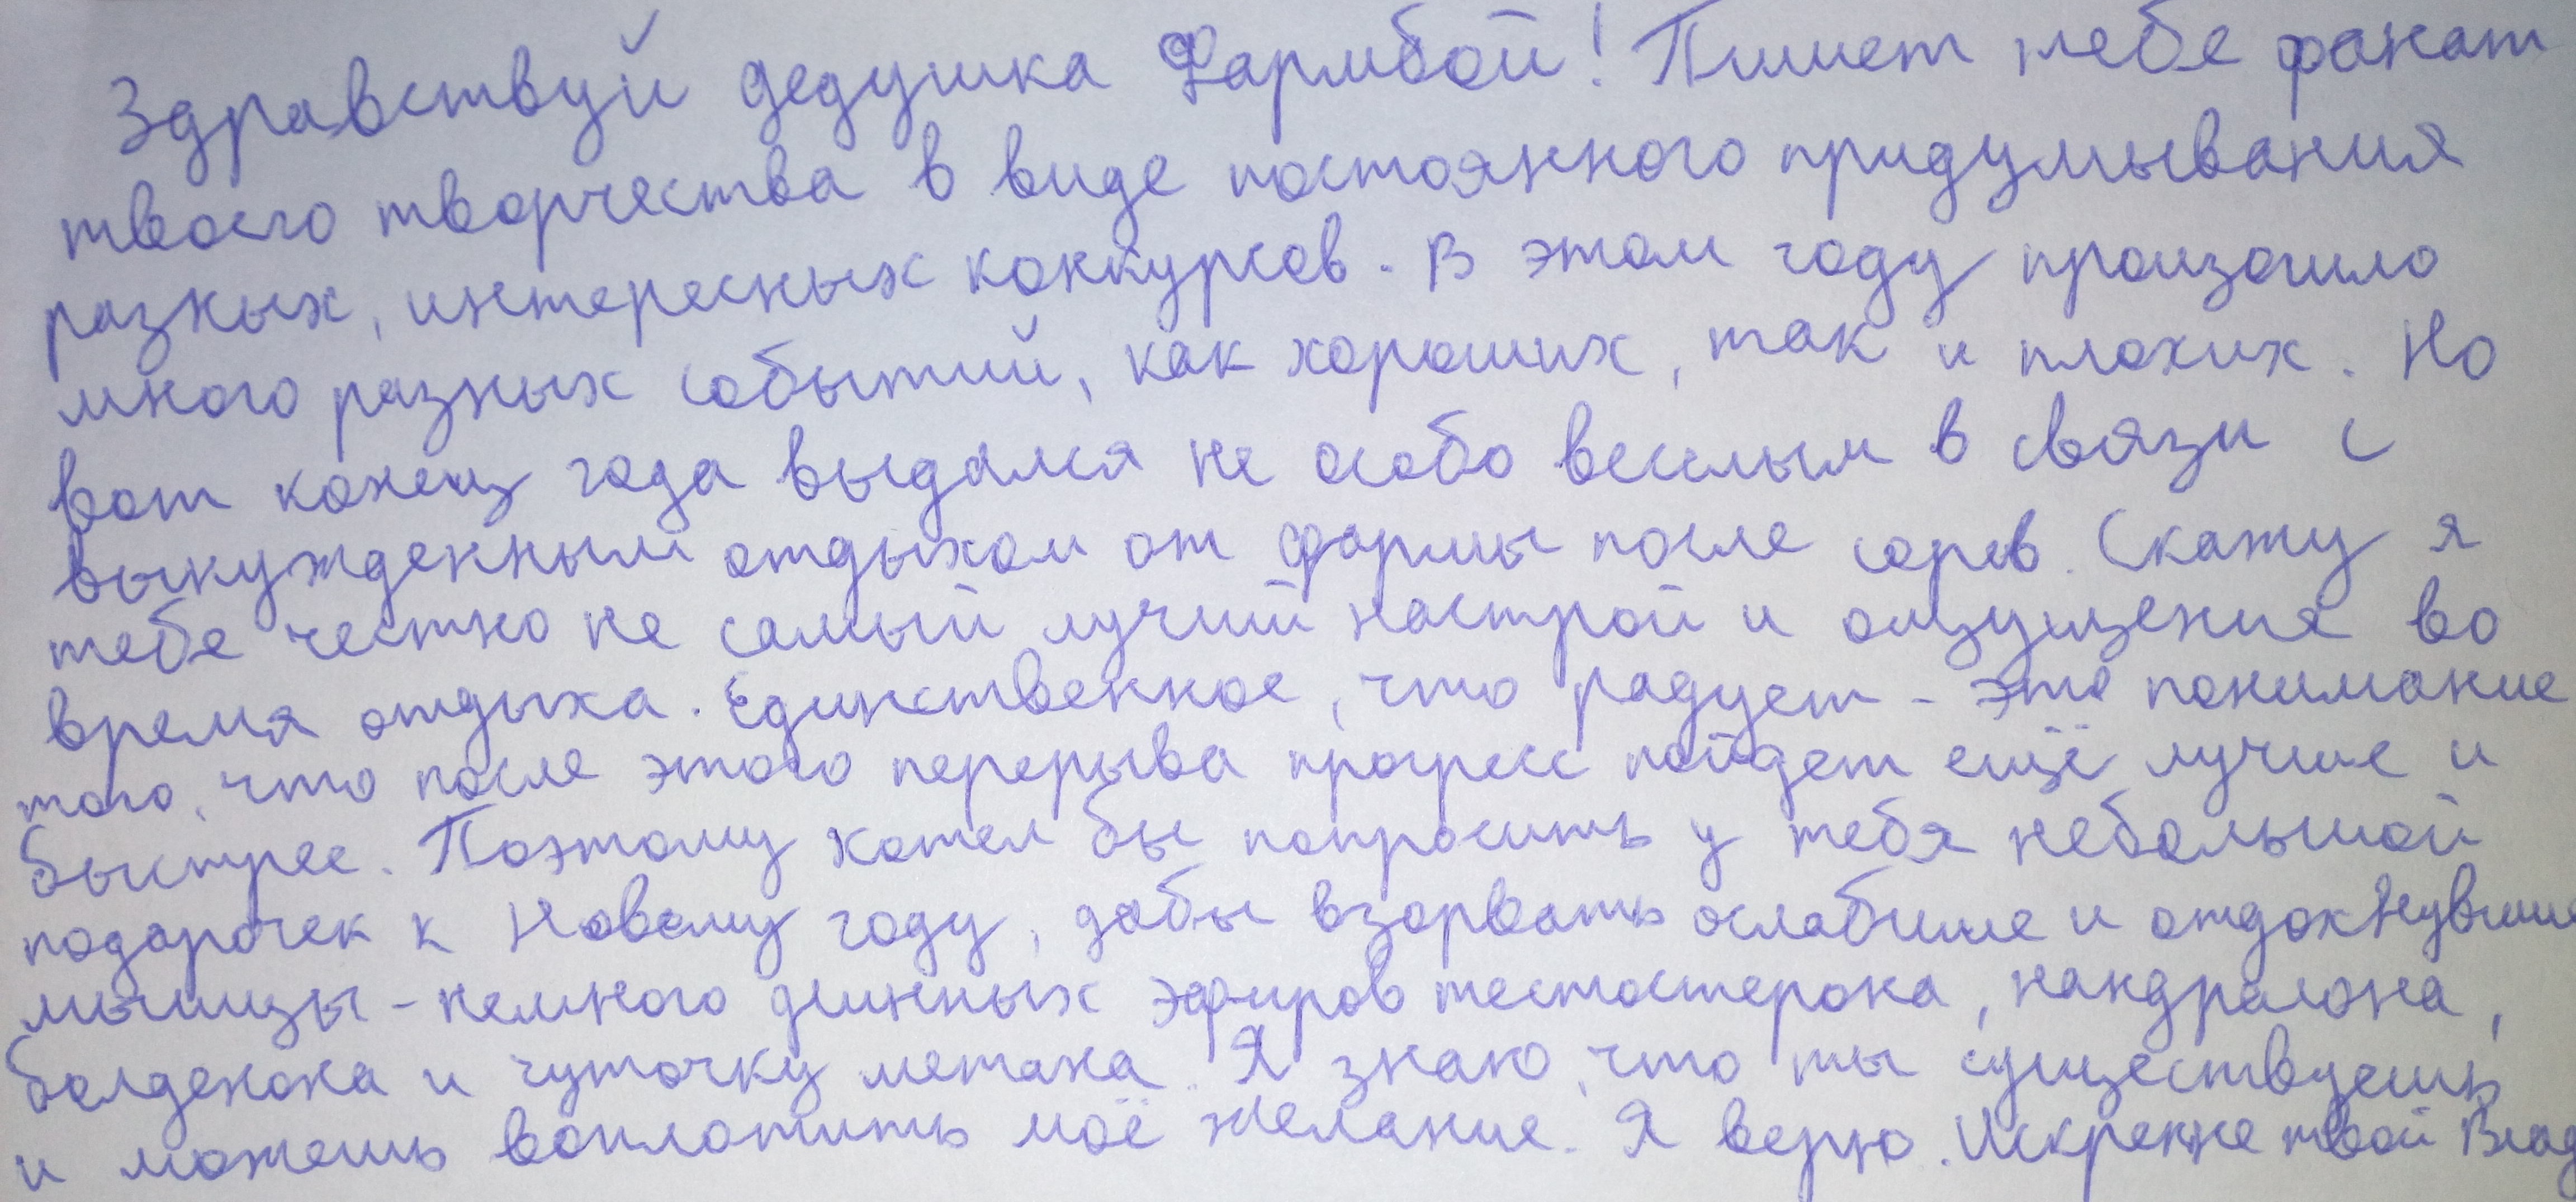 Здравствуй дедушка Фармбой! Пишет тебе фанат
твоего творчества в виде постоянного придумывания
разных, интересных конкурсов. В этом году произошло
много разных событий, как хороших, так и плохих. Но
вот конец года выдался не особо веселым в связи с
вынужденным отдыхом от фармы после сорев. Скажу я
тебе честно не самый лучий настрой и ощущения во
время отдыха. Единственное, что радует - это понимание
того, что после этого перерыва прогресс пойдет ещё лучше и
быстрее. Поэтому хотел бы попросить у тебя небольшой
подарочек к Новому году, дабы взорвать ослабшие и отдохнувшие
мышцы - немного длинных эфиров тестостерона, нандролона,
болденона и чуточку метана. Я знаю, что ты существуешь
и можешь воплотить моё желание. Я верю. Искренне твой Влад